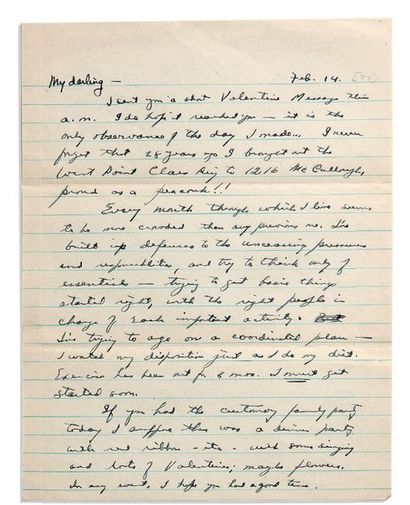 My darling — Feb. 14.
I sent you a short Valentine Message this
a.m. I do hope it reached you — it is the
only observance of the day I made... I never
forget that 28 years ago I brought out the
West Point Class Ring to 1216 McCullough,
proud as a peacock!!
Every month through which I live seems
to be more crowded than any previous one. I've
built up defenses to the unceasing pressures
and responsibilities, and try to think only of
essentials — trying to get basic things
started right, with the right people in
charge of each important activity.
I'm trying to age on a coordinated plan —
I watch my disposition just as I do my diet.
Exercise has been out for 8 mos. I must get
started soon.
If you had the customary family party
today I suppose there was a dinner party
with red ribbon — etc — with some singing
and lots of Valentines; maybe flowers.
In any event, I hope you had a good time.